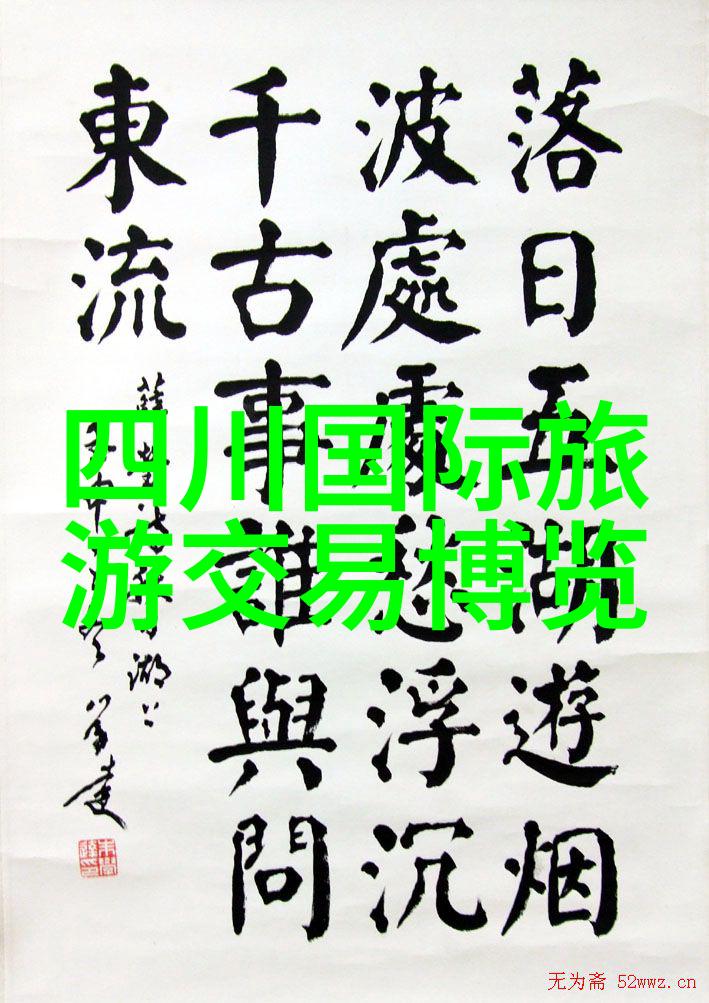 落日五湖遊烟
波處處愁浮沉
千古事誰與問
東流
四川国际旅
游交易博览
无为斋 52wwz.cn